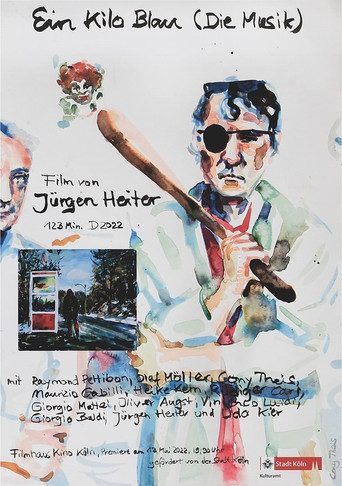 Ein Kilo Blau (Die Musik)
Film von
Jürgen Heiter
123 Min. D 2022
mit Raymond Pettibon, Olaf Möller, Gony Theis,
Maurizio Gabilli, Heike Kern,
Giorgio Mattei, Oliver Augst,
Giorgio Baldi, Jürgen Heiter und Udo Kier
Filmhaus Kino Köln, Premiere am Mai 2022,
gefördert von der Stadt Köln
Stadt Köln
Kulturamt